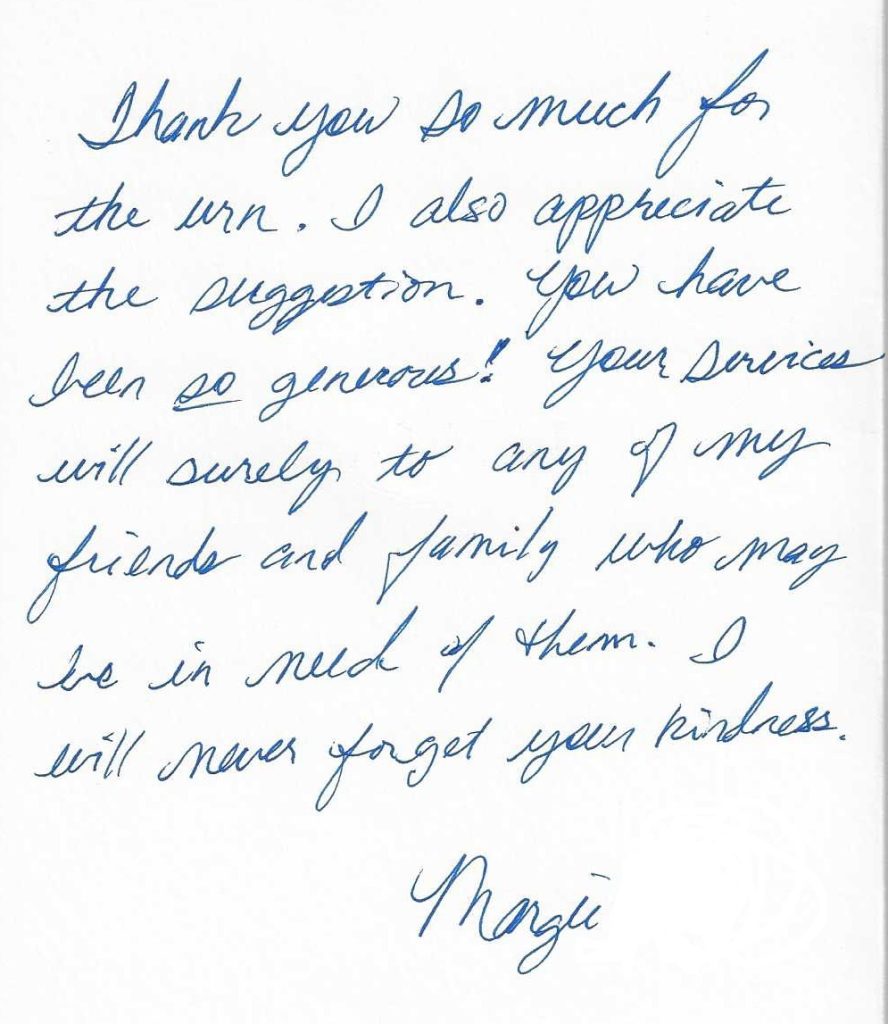 Thank you so much for
the urn. I also appreciate
the suggestion. You have
been so generous! Your services
will surely to any of my
friends and family who may
be in need of them. I
will never forget your kindness.
Margie